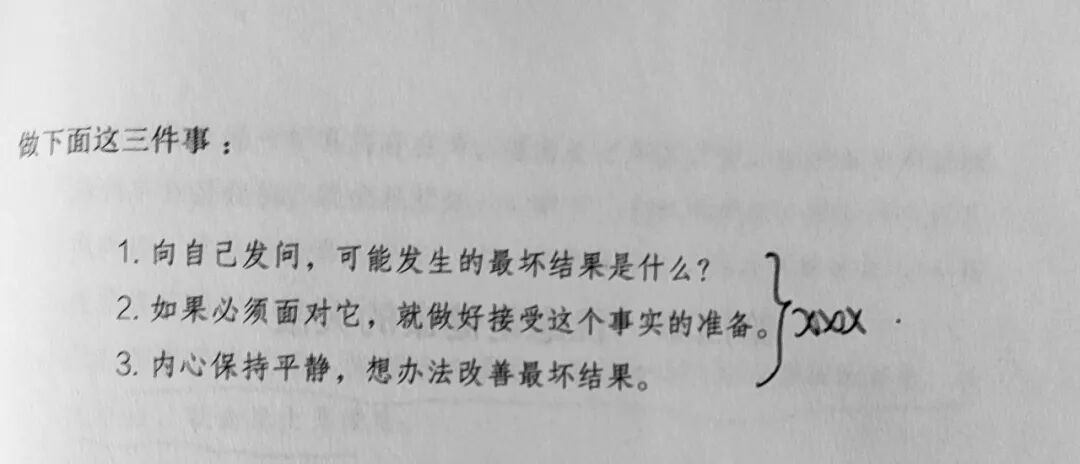 做下面这三件事：
1. 向自己发问，可能发生的最坏结果是什么？
2. 如果必须面对它，就做好接受这个事实的准备。
3. 内心保持平静，想办法改善最坏结果。
xxxx